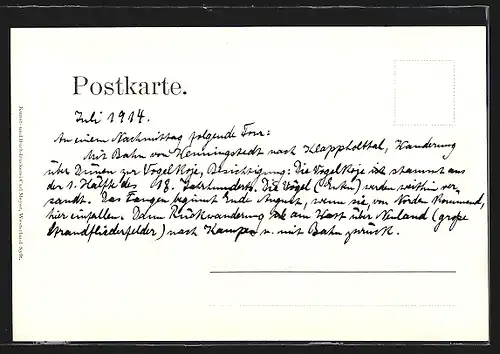 Postkarte.
Juli 1914.
An einem Nachmittag folgende Tour:
Mit Bahn von Wenningstedt nach Klappholttal, Wanderung
über Dünen zur Vogelkoje, Besichtigung: Die Vogelkoje stammt aus
der 1. Hälfte des 18. Jahrhunderts. Die Vögel (Enten) werden weithin ver-
sandt. Das Fangen beginnt Ende August, wenn sie, von Norden kommend,
hier einfallen. Dann Rückwanderung am Watt über (große
Strandfliederfelder) nach Kampen u. mit Bahn zurück.
Kunst- und Buchdruckerei Carl Meyer, Westerland-Sylt.